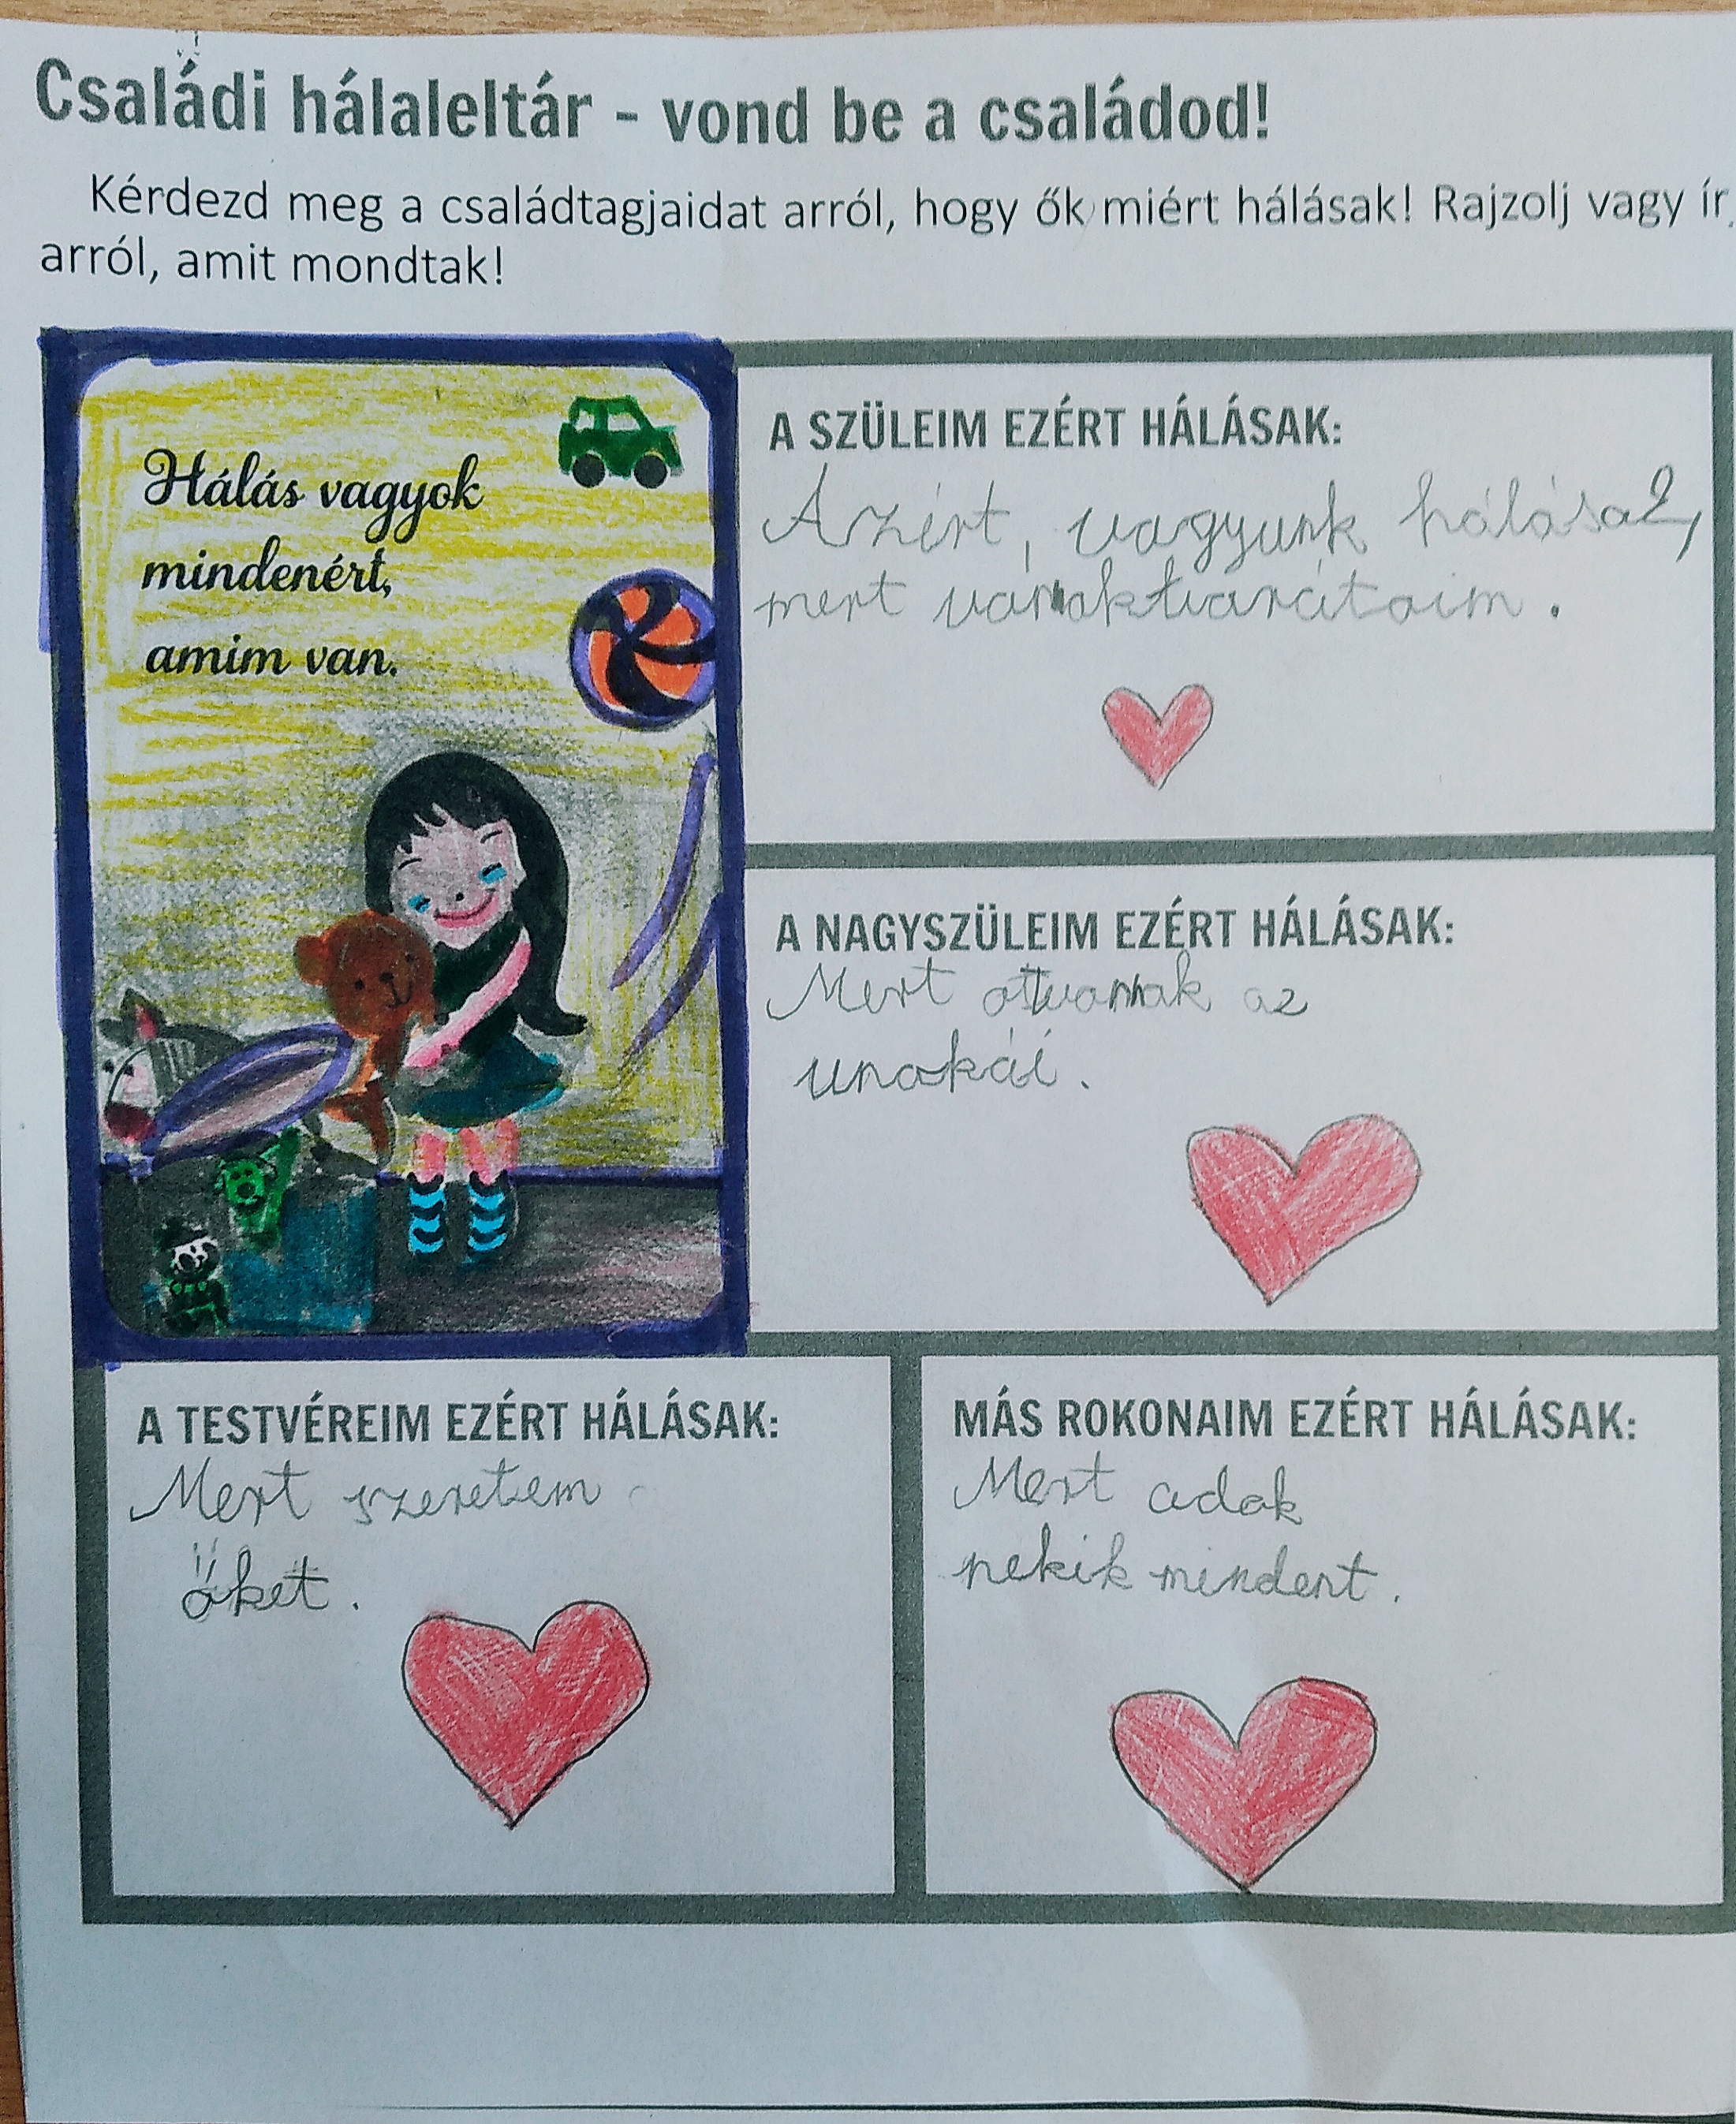 Családi hálaleltár - vond be a családod!
Kérdezd meg a családtagjaidat arról, hogy ők miért hálásak! Rajzolj vagy ír
arról, amit mondtak!
Hálás vagyok
mindenért,
amim van.
A SZÜLEIM EZÉRT HÁLÁSAK:
Azért, vagyunk hálásak,
mert
A NAGYSZÜLEIM EZÉRT HÁLÁSAK:
Mert az
unokái.
A TESTVÉREIM EZÉRT HÁLÁSAK:
Mert szeretem
őket.
MÁS ROKONAIM EZÉRT HÁLÁSAK:
Mert adok
nekik mindent.